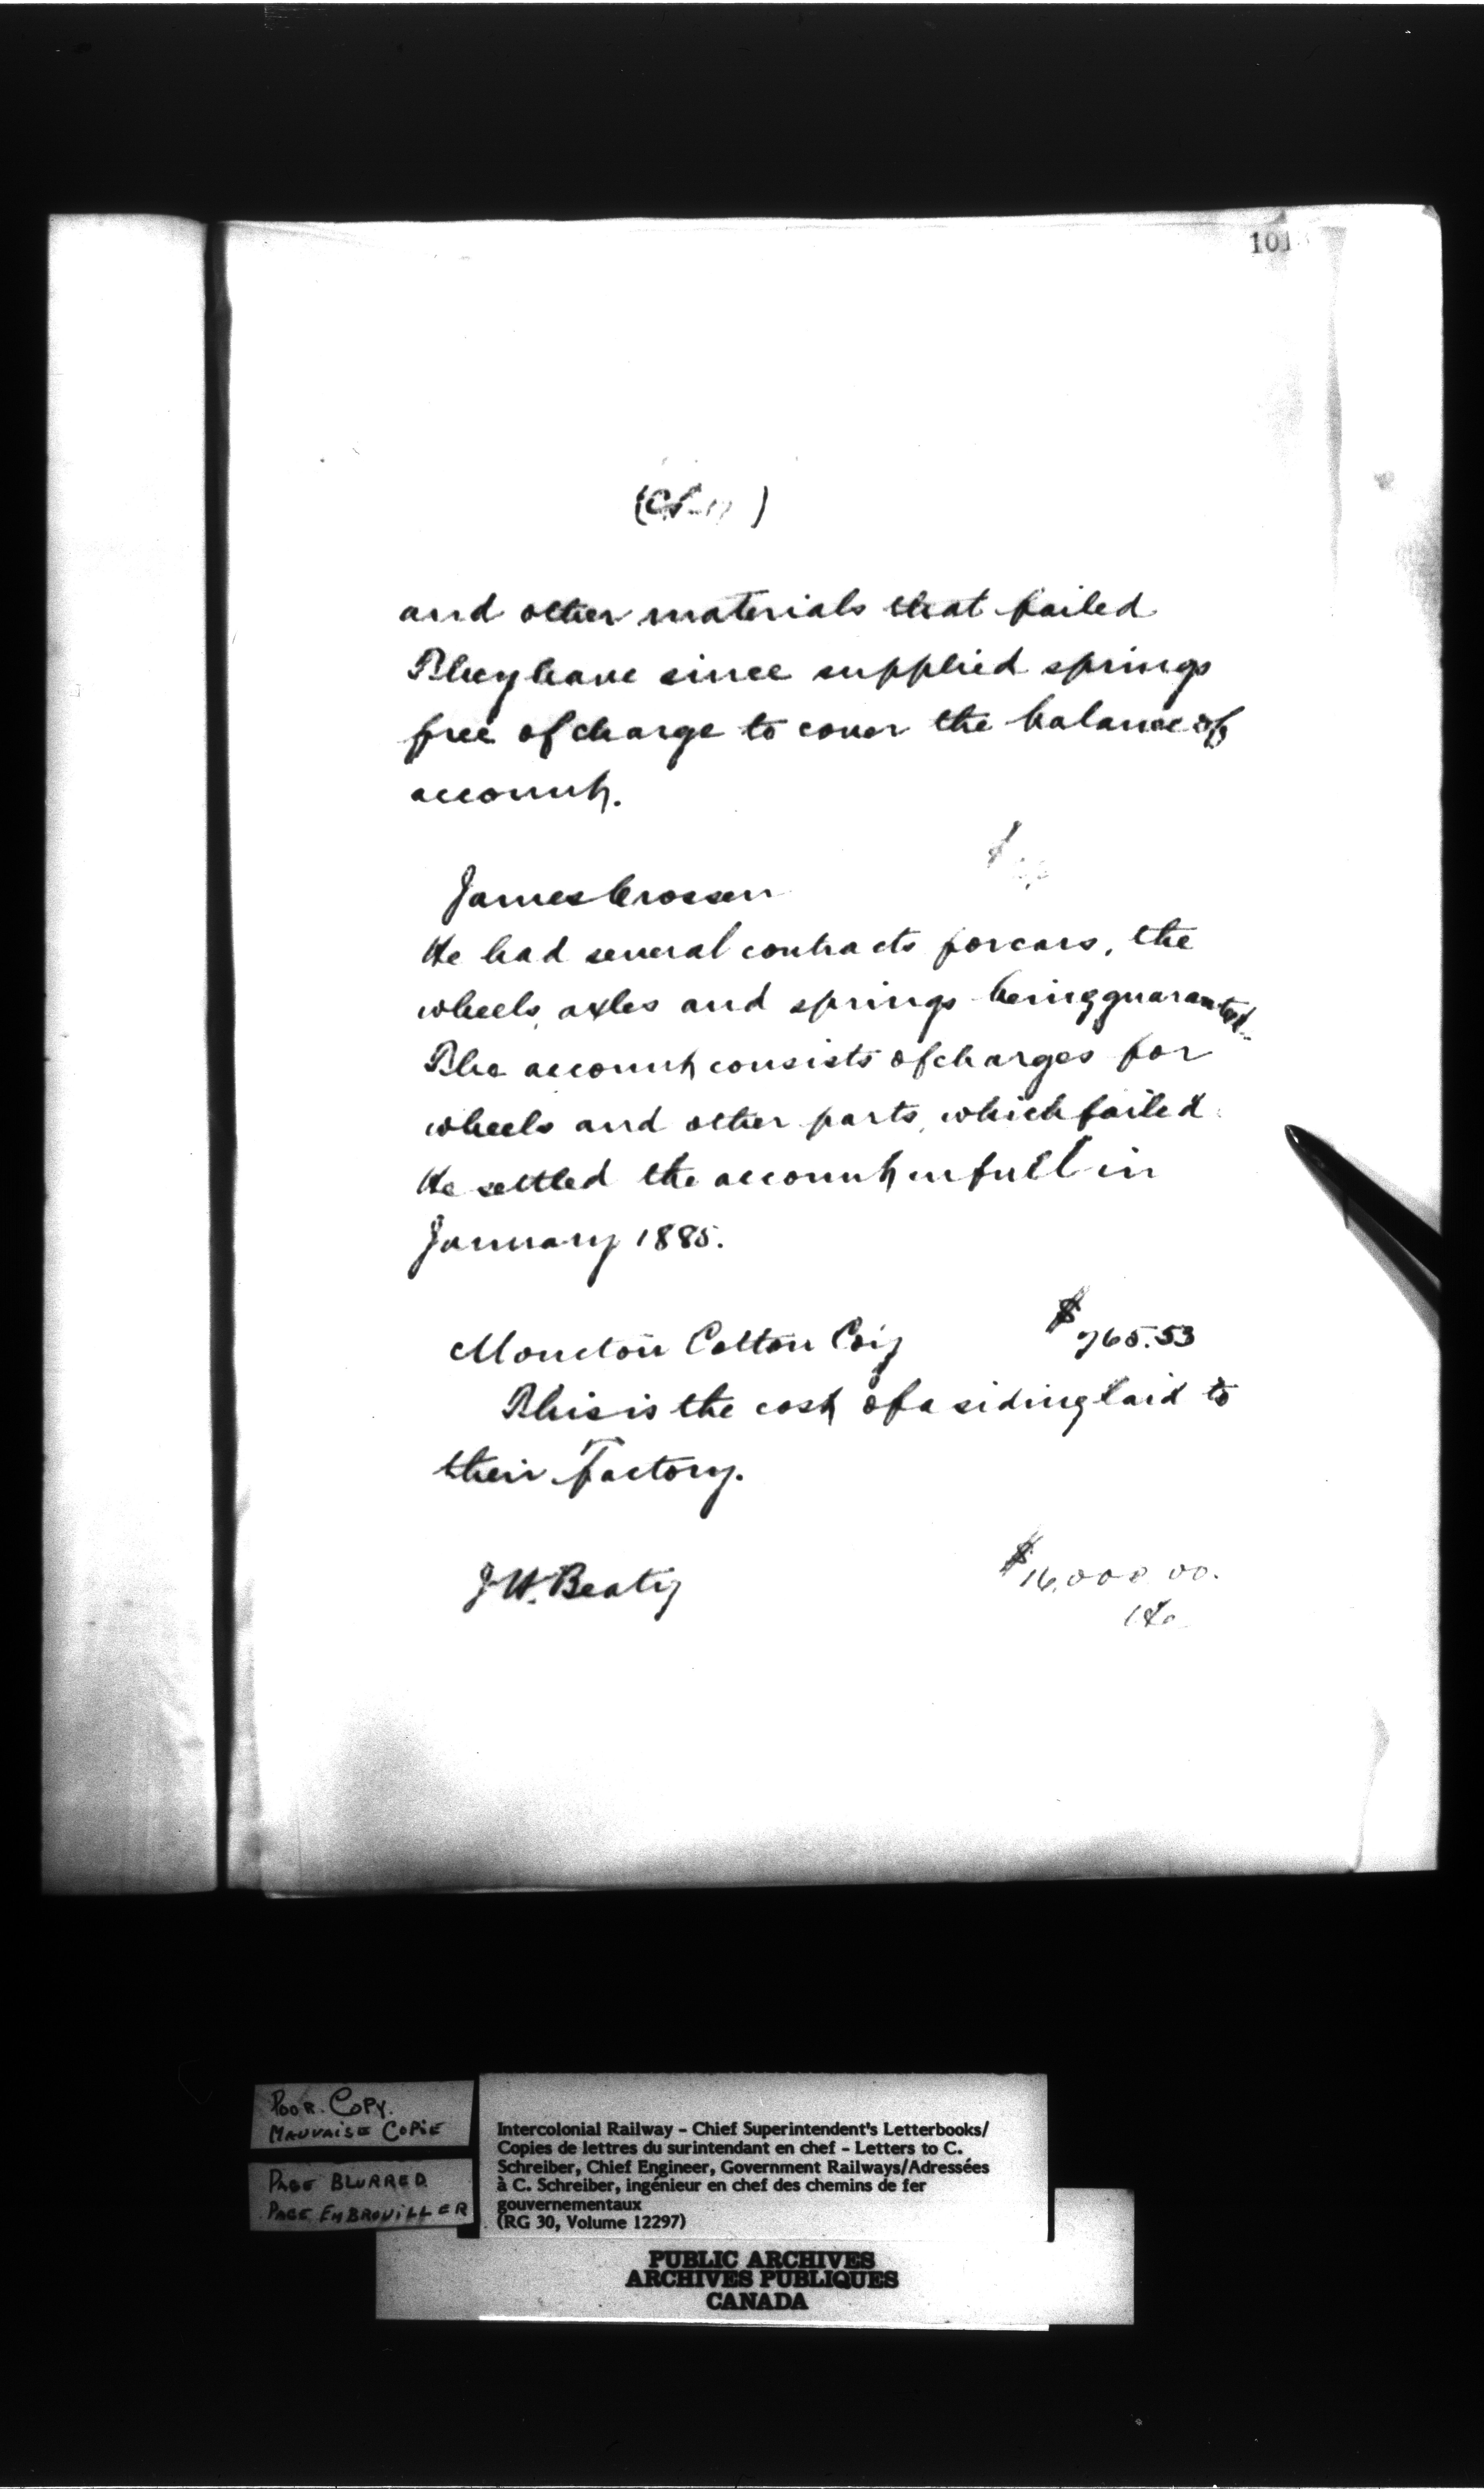 101
and other materials that failed
They have since supplied springs
free of charge to cover the balance of
account.
$
James Crossen
He had several contracts for cars, the
wheels, axles and springs being guaranteed.
The account consists of charges for
wheels and other parts, which failed.
He settled the account in full in
January 1885.
Moncton Cotton Coy $765.53
This is the cost of a siding laid to
their Factory.
J W. Beaty $16,000.00.
POOR COPY.
MAUVAISE COPIE
PAGE BLURRED
PAGE EMBROUILLER
Intercolonial Railway - Chief Superintendent's Letterbooks/
Copies de lettres du surintendant en chef - Letters to C.
Schreiber, Chief Engineer, Government Railways/Adressées
à C. Schreiber, ingénieur en chef des chemins de fer
gouvernementaux
(RG 30, Volume 12297)
PUBLIC ARCHIVES
ARCHIVES PUBLIQUES
CANADA